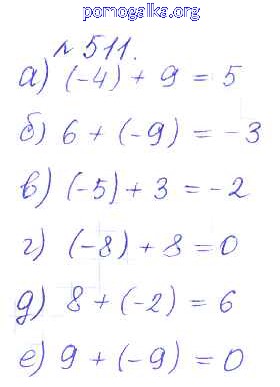 pomogalka.org
№ 511.
а) (-4) + 9 = 5
б) 6 + (-9) = -3
в) (-5) + 3 = -2
г) (-8) + 8 = 0
д) 8 + (-2) = 6
е) 9 + (-9) = 0